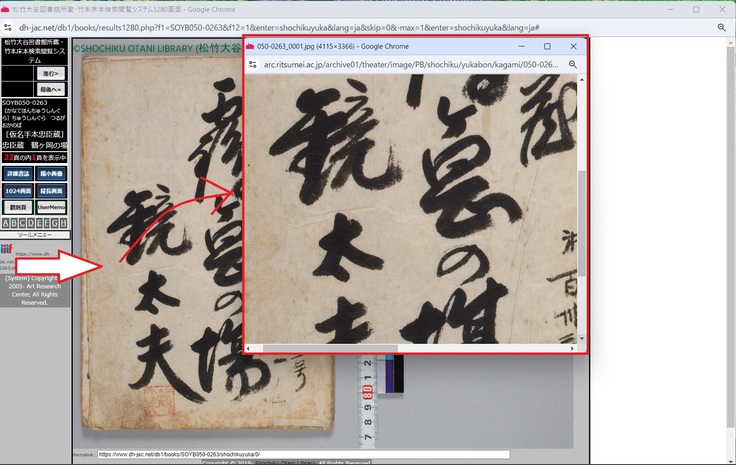 松竹大谷図書館所蔵・竹本床本検索閲覧システム1280画面 - Google Chrome
dh-jac.net/db1/books/results1280.php?f1=SOYB050-0263&f12=1&enter=shochikuyuka&lang=ja&skip=0&-max=1&enter=shochikuyuka&lang=ja#
松竹大谷図書館所蔵・竹本床本検索閲覧システム
進む>
最後へ»
SOYB050-0263
[かなでほんちゅうしんぐら] ちゅうしんぐら つるがおかのば
[仮名手本忠臣蔵] 忠臣蔵 鶴ヶ岡の場
22頁の内1頁を表示中
詳細書誌
縮小画像
1024画面
縦長画面
翻刻頁
UserMemo
A B C D E F G H
ツールメニュー
iiif
https://www.dh-jac.net
0263/
(System) Copyright
2005- Art Research Center, All Rights Reserved.
©SHOCHIKU OTANI LIBRARY (松竹大谷
の場
鏡太夫
号
1 2
80
9
8
7
050-0263_0001.jpg (4115×3366) - Google Chrome
arc.ritsumei.ac.jp/archive01/theater/image/PB/shochiku/yukabon/kagami/050-026...
蔵
の場
鏡太夫
Permalink:
https://www.dh-jac.net/db1/books/SOYB050-0263/shochikuyuka/0/
Copyright © 2018- Shochiku Otani Library, All Rights Reserved.